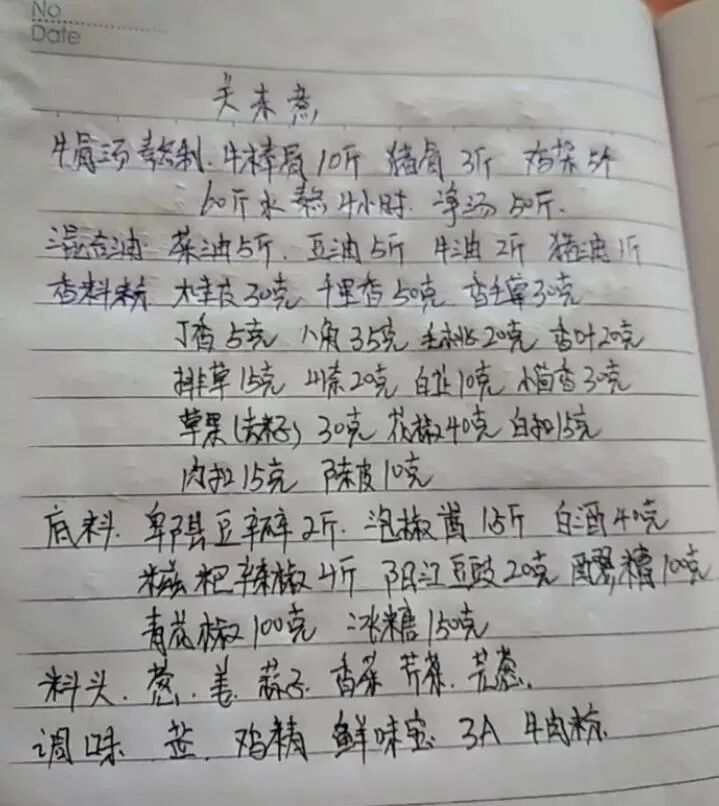 No
Date
关东煮
牛骨汤熬制. 牛棒骨10斤 猪骨3斤 鸡架5个
60斤水熬4小时. 净汤50斤.
混合油. 菜油5斤. 豆油5斤 牛油2斤 猪油1斤
香料粉 桂皮30克 千里香50克 香毛草30克
丁香5克 八角35克 毛桃20克 香叶20克
排草15克 山奈20克 白芷10克 小茴香30克
草果(去籽) 30克 花椒40克 白扣15克
肉扣15克 陈皮10克
底料. 郫县豆瓣2斤. 泡椒酱1.5斤 白酒40克
糍粑辣椒4斤 阳江豆豉20克 醪糟100克
青花椒100克 冰糖150克
料头. 葱. 姜. 蒜子. 香菜 芹菜. 洋葱.
调味. 盐. 鸡精 鲜味宝 3A 牛肉粉.